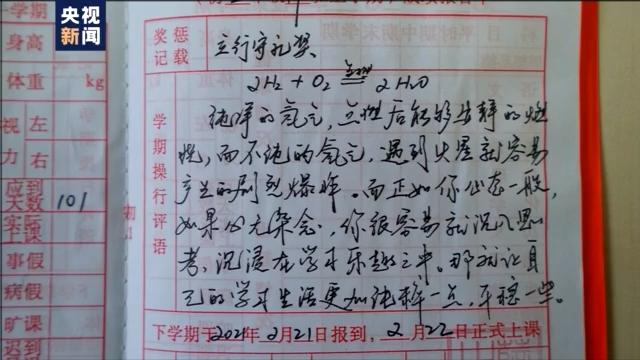 央视新闻
学期
身高
体重 kg
视力 左 右
应到天数 101
实际上课
事假
病假
旷课
迟到
奖惩记载
立行守礼奖
学期操行评语
2H₂ + O₂ 点燃 2H₂O
纯净的氢气，点燃后能够安静的燃
烧，而不纯的氢气，遇到火星就容易
产生的剧烈爆炸。而正如你心态一般，
如果心无杂念，你很容易就沉入思
考，沉浸在学习乐趣之中。那就让自
己的学习生活更加纯粹一点，平稳一些。
下学期于2021年2月21日报到，2月22日正式上课